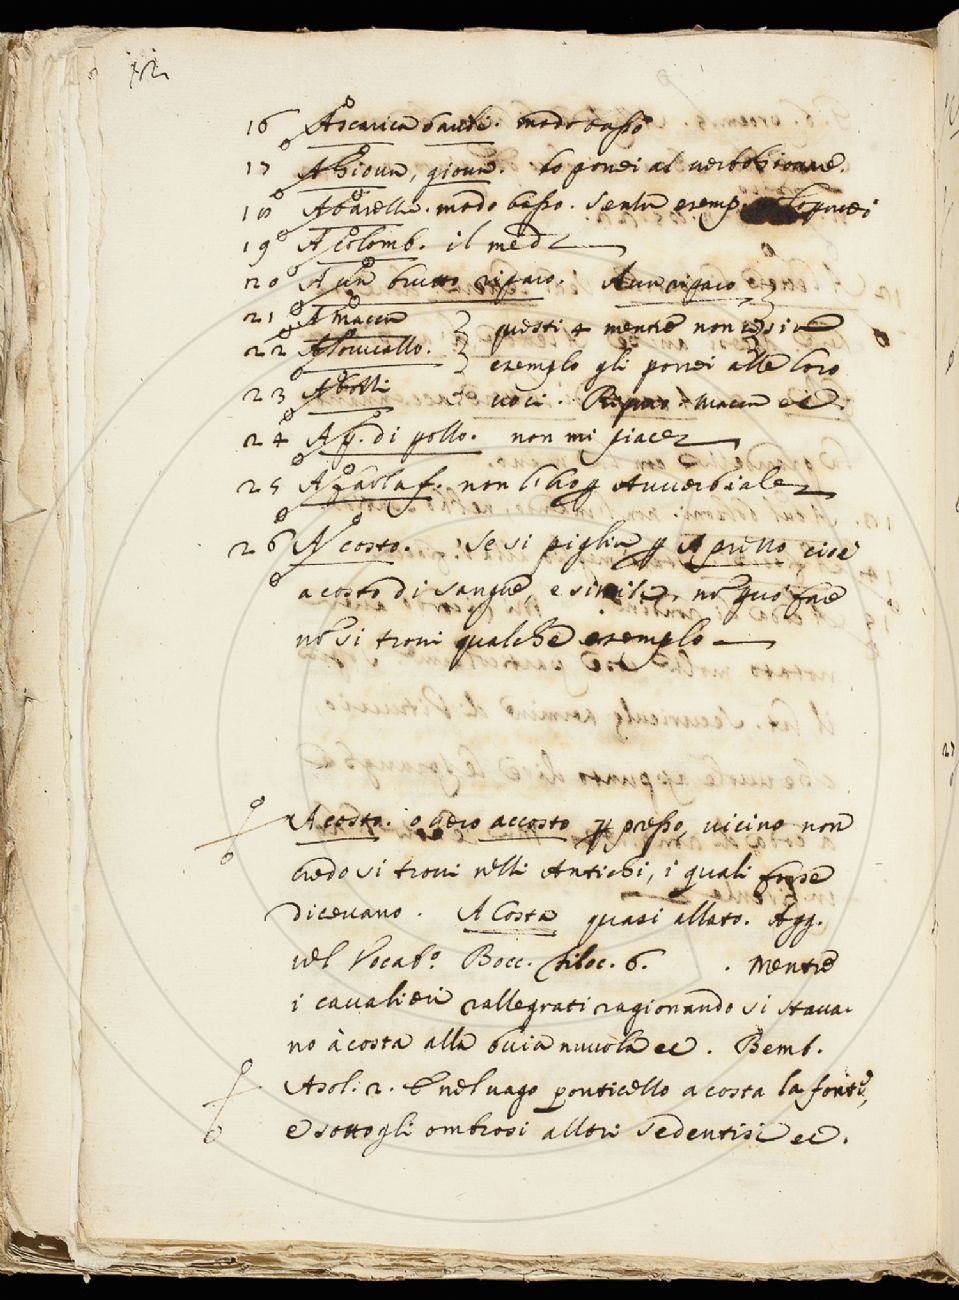 12
16 A scarica barili. modo basso
17 A Giova, giova. lo porrei al verbo Giovare.
18 A barella. modo basso. senza exemp. lo porrei
19 A colomb. il med.
20 A un brutto riparo. A un riparo
21 A macca } questi 4 mentre non vi si
22 A } exemplo gli porrei alle loro
23 A bolli voci. Riparo, Macca ec.
24 A p. di pollo. non mi piace
25 A non l'ho p Avverbiale
26 A costo. Se si piglia p A prezzo cioè
a costo di sangue, e simile, nõ può fare
nõ si trovi qualche exemplo
A costo. o vero accosto p presso, vicino non
credo si trovi nelli Antichi, i quali forse
dicevano. A Costa quasi allato. Agg.
nel Vocab.º Bocc. filoc. 6. . Mentre
i cavalieri rallegrati ragionando si stava-
no à costa alla buia nuvola ec. Bemb.
Asol. 2. E nel vago ponticello a costa la fonte,
e sotto gli ombrosi allori sedentisi ec.